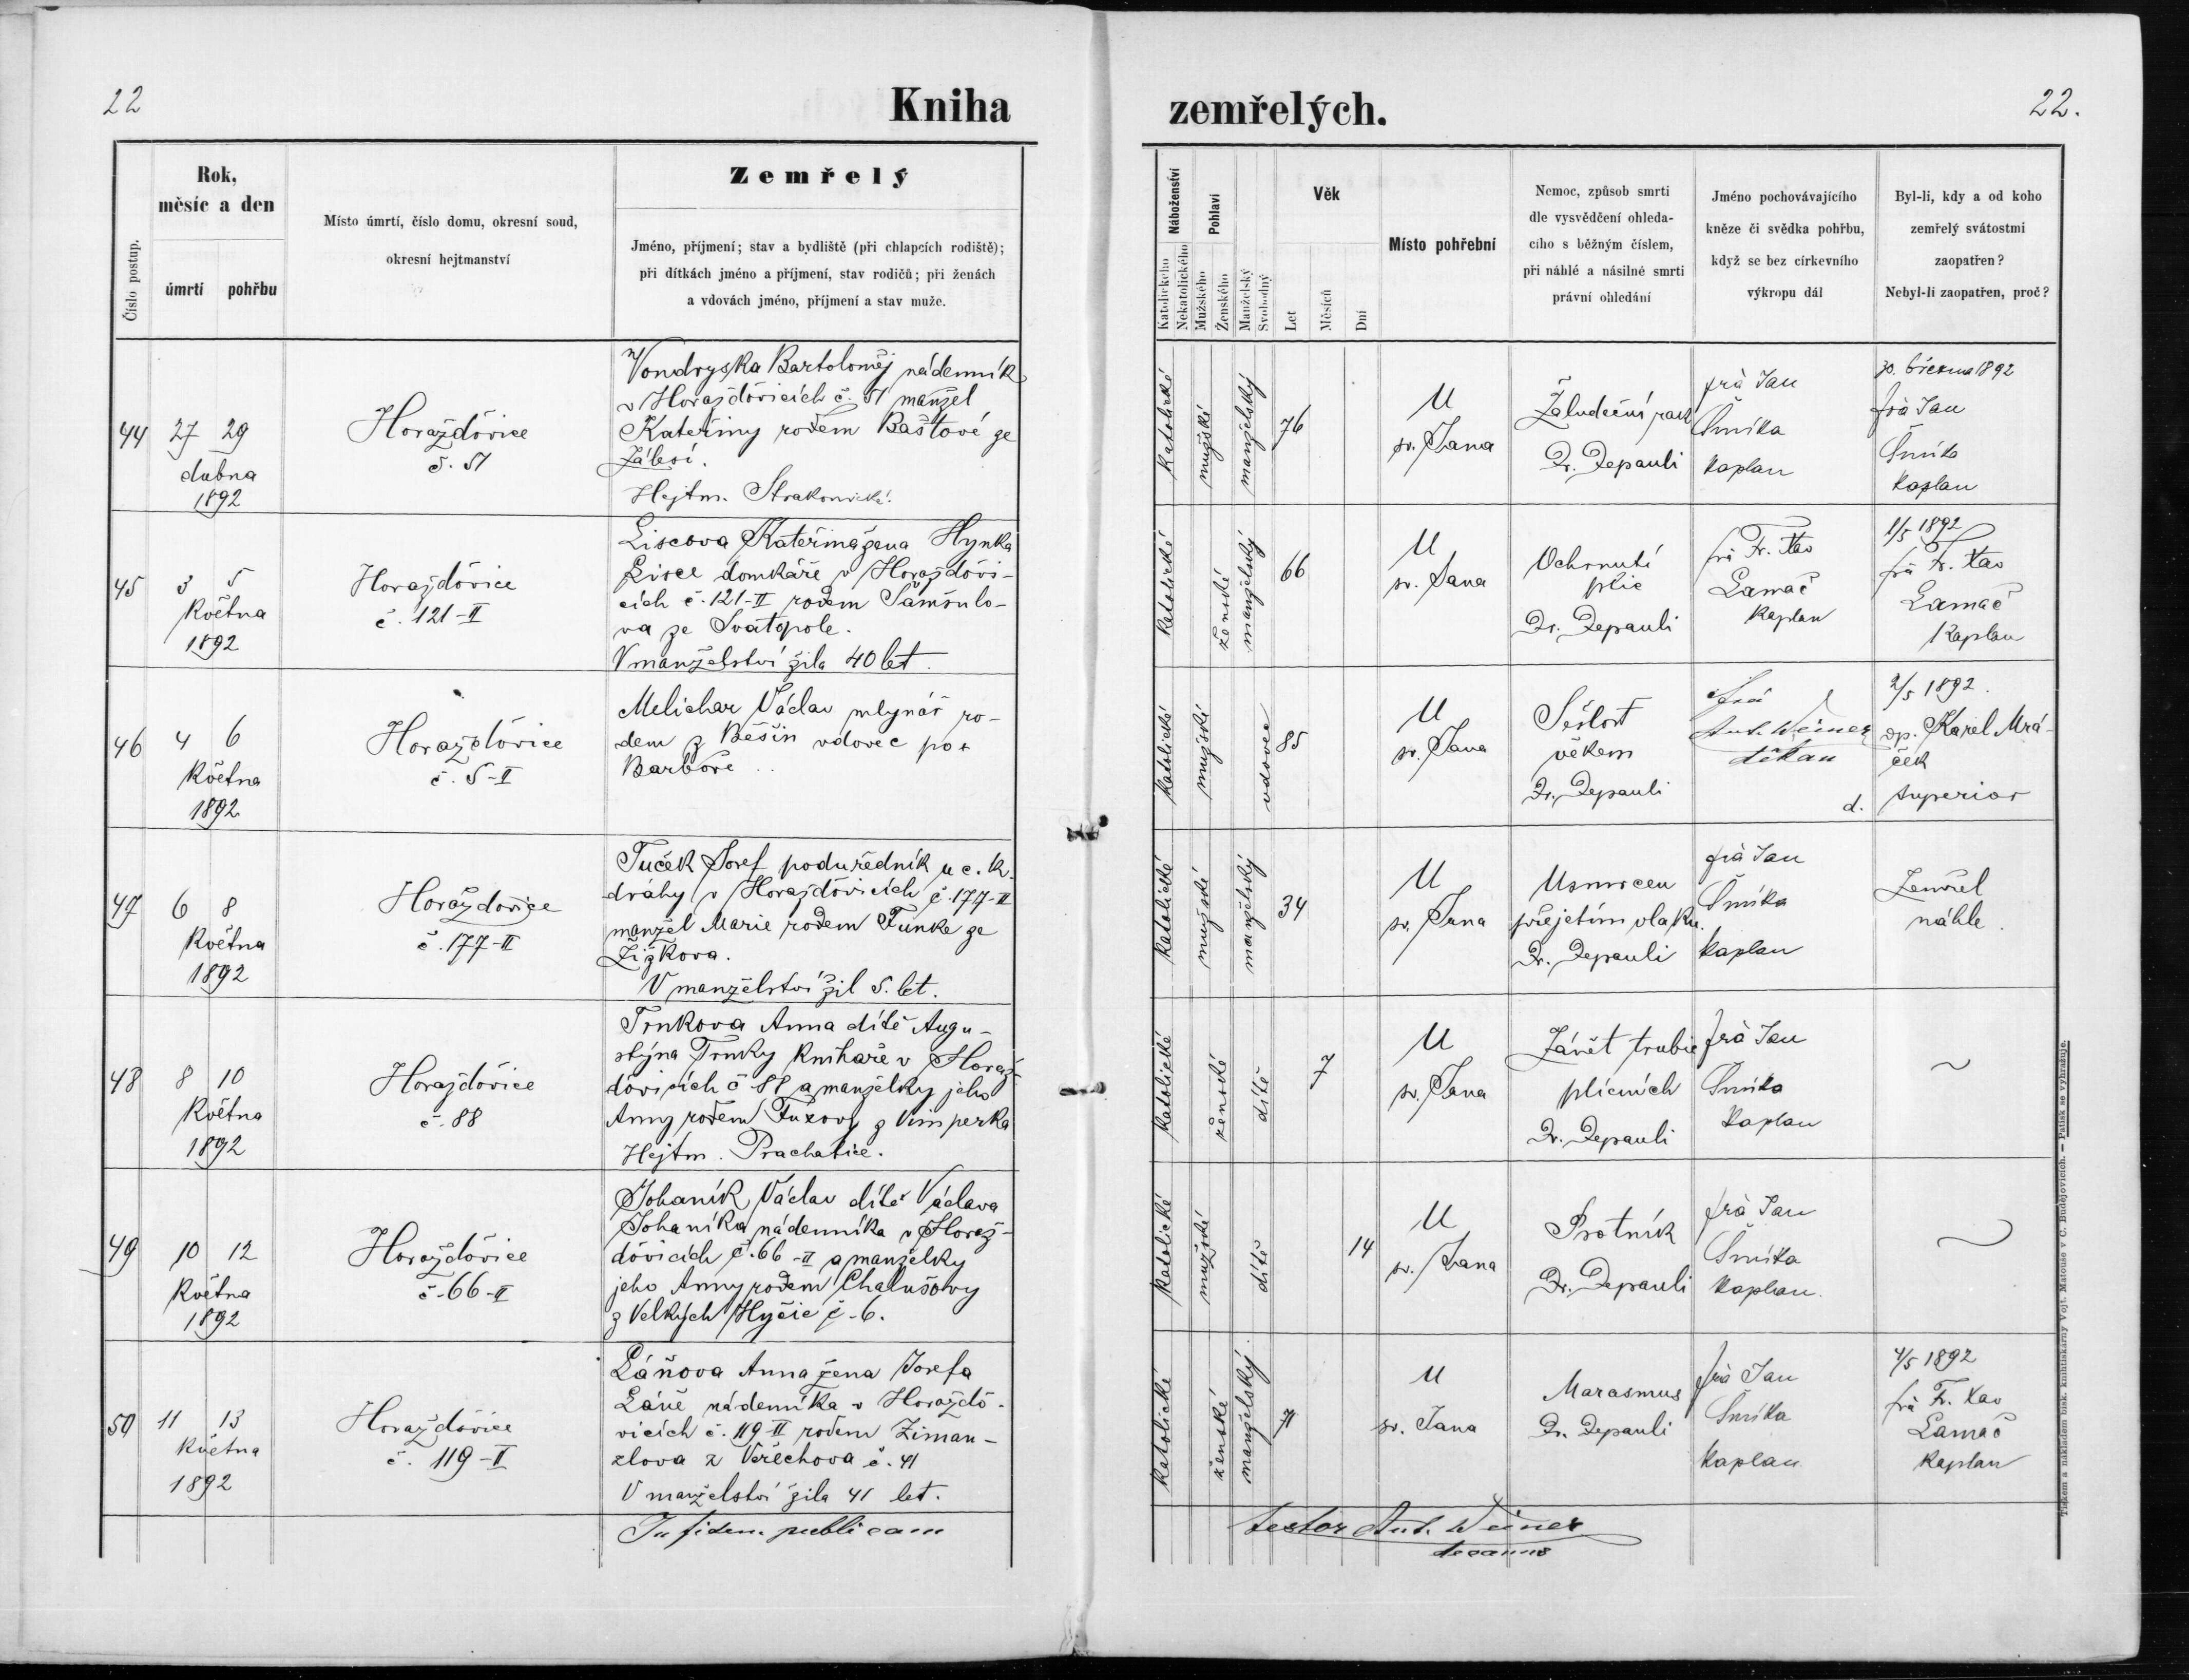 22
Kniha
zemřelých.
22.
Číslo postup.
Rok,
měsíc a den
úmrtí pohřbu
Místo úmrtí, číslo domu, okresní soud,
okresní hejtmanství
Zemřelý
Jméno, příjmení; stav a bydliště (při chlapcích rodiště);
při dítkách jméno a příjmení, stav rodičů; při ženách
a vdovách jméno, příjmení a stav muže.
Náboženství
Katolického
Nekatolického
Pohlaví
Mužského
Ženského
Manželský
Svobodný
Věk
Let
Měsíců
Dní
Místo pohřební
Nemoc, způsob smrti
dle vysvědčení ohleda-
cího s běžným číslem,
při náhlé a násilné smrti
právní ohledání
Jméno pochovávajícího
kněze či svědka pohřbu,
když se bez církevního
výkropu dál
Byl-li, kdy a od koho
zemřelý svátostmi
zaopatřen?
Nebyl-li zaopatřen, proč?
44
27 29
dubna
1892
Horažďovice
č. 51
Vondryska Bartoloměj nádenník
v Horažďovicích č. 51 manžel
Kateřiny rodem Baštové ze
Zálesí.
Hejtm. Strakonické.
katolické
mužské
manželský
76
U
sv. Jana
Žaludeční
Dr. Depauli
frà Jan
Šmíka
kaplan
března 1892
frà Jan
Šmíka
kaplan
45
3 5
Května
1892
Horažďovice
č. 121-II
Liscova Kateřina žena Hynka
Lisce domkáře v Horažďovi-
cích č. 121-II rodem Samšulo-
va ze Svatopole.
V manželství žila 40 let.
katolické
ženské
manželský
66
U
sv. Jana
Ochrnutí
plic
Dr. Depauli
frà Fr. Xav
Lamač
Kaplan
1/5 1892
frà Fr. Xav
Lamač
Kaplan
46
4 6
Května
1892
Horažďovice
č. 5-II
Melichar Václav mlynář ro-
dem z Běšin vdovec po +
Barboře
katolické
mužské
vdovec
85
U
sv. Jana
Sešlost
věkem
Dr. Depauli
frà
Ant. Weiner
děkan
d.
2/5 1892.
dp. Karel Mrá-
ček
superior
47
6 8
Května
1892
Horažďovice
č. 177-II
Tuček Josef podúředník u c. k.
dráhy v Horažďovicích č. 177-II
manžel Marie rodem Funke ze
Žižkova.
V manželství žil 5. let.
katolické
mužské
manželský
34
U
sv. Jana
Usmrcen
přejetím vlaku.
Dr. Depauli
frà Jan
Šmíka
kaplan
Zemřel
náhle.
48
8 10
Května
1892
Horažďovice
č. 88
Trnkova Anna dítě Augu-
stýna Trnky knihaře v Horaž-
ďovicích č 88 a manželky jeho
Anny rodem Fuxovy z Vimperka
Hejtm. Prachatice.
katolické
ženské
dítě
7
U
sv. Jana
Zánět trubic
plicních
Dr. Depauli
frà Jan
Šmíka
kaplan
~
49
10 12
Května
1892
Horažďovice
č. 66-II
Johaník Václav dítě Václava
Johaníka nádenníka v Horaž-
ďovicích č. 66-II a manželky
jeho Anny rodem Chalušovy
z Velkých Hyčic č. 6.
katolické
mužské
dítě
14
U
sv. Jana
Psotník
Dr. Depauli
frà Jan
Šmíka
kaplan.
~
50
11 13
Května
1892
Horažďovice
č. 119-II
Láňova Anna žena Josefa
Láně nádenníka v Horažďo-
vicích č. 119-II rodem Ziman-
zlova z Veřechova č. 41
V manželství žila 41 let.
katolické
ženské
manželský.
71
U
sv. Jana
Marasmus
Dr. Depauli
frà Jan
Šmíka
kaplan
4/5 1892
frà Fr. Xav
Lamač
Kaplan
In fidem publicam
testor Ant. Weiner
decanus
Tiskem a nákladem bisk. knihtiskárny Vojt. Matouse v Č. Budějovicích. — Patisk se vyhražuje.